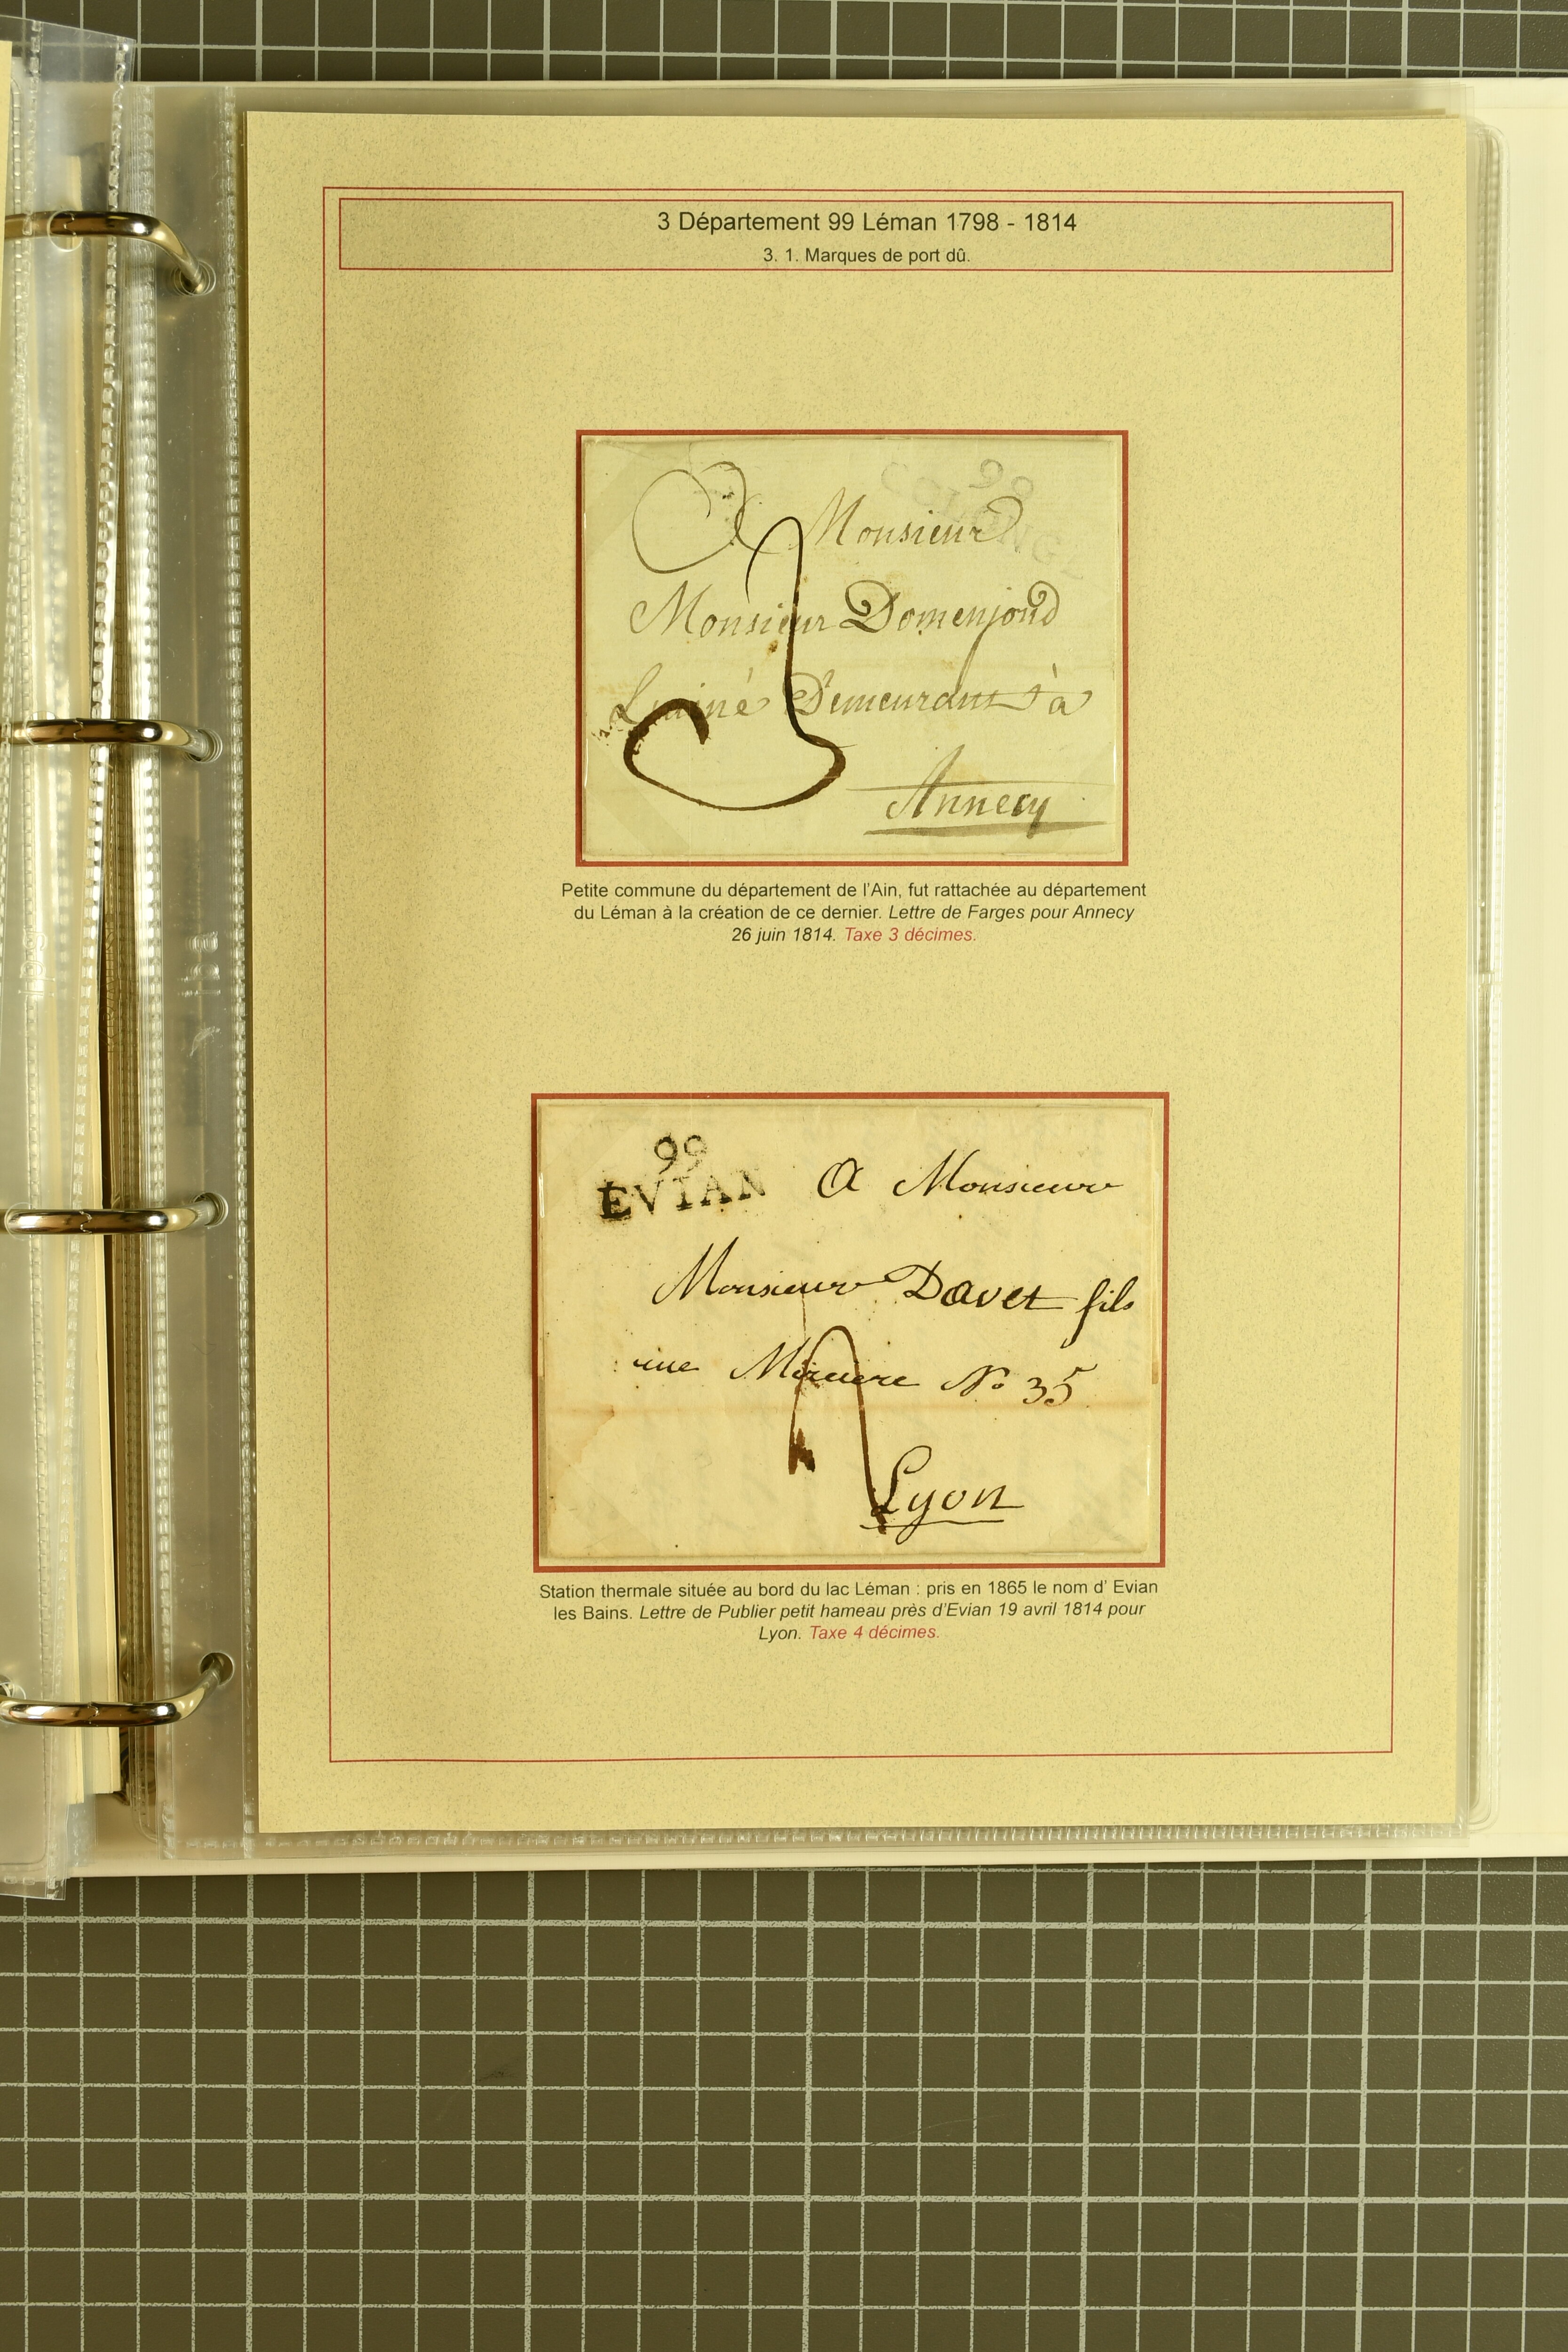 3 Département 99 Léman 1798 - 1814
3. 1. Marques de port dû.
99
COLONG
A Monsieur
Monsieur Domenjoud
Demeurant à
Annecy
3
Petite commune du département de l'Ain, fut rattachée au département
du Léman à la création de ce dernier. Lettre de Farges pour Annecy
26 juin 1814. Taxe 3 décimes.
99
EVIAN
A Monsieur
Monsieur Davet fils
rue Merciere No 35
Lyon
4
Station thermale située au bord du lac Léman : pris en 1865 le nom d' Evian
les Bains. Lettre de Publier petit hameau près d'Evian 19 avril 1814 pour
Lyon. Taxe 4 décimes.